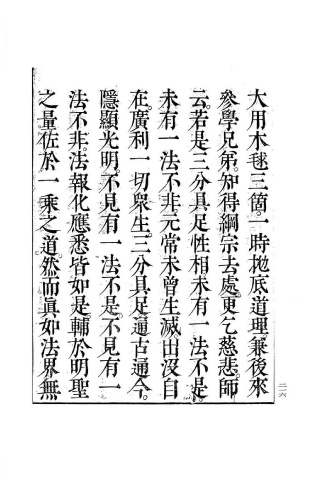 大用木毬三箇。一時抛底道理兼後來
參學兄弟。知得綱宗去處。更乞慈悲。師
云。若是三分具足性相。未有一法不是。
未有一法不非。元常未曾生滅出沒自
在。廣利一切衆生。三分具足。通古通今。
隱顯光明。不見有一法不是。不見有一
法不非。法報化應悉皆如是。輔於明聖
之量。佐於一乘之道。然而眞如法界無
二一六